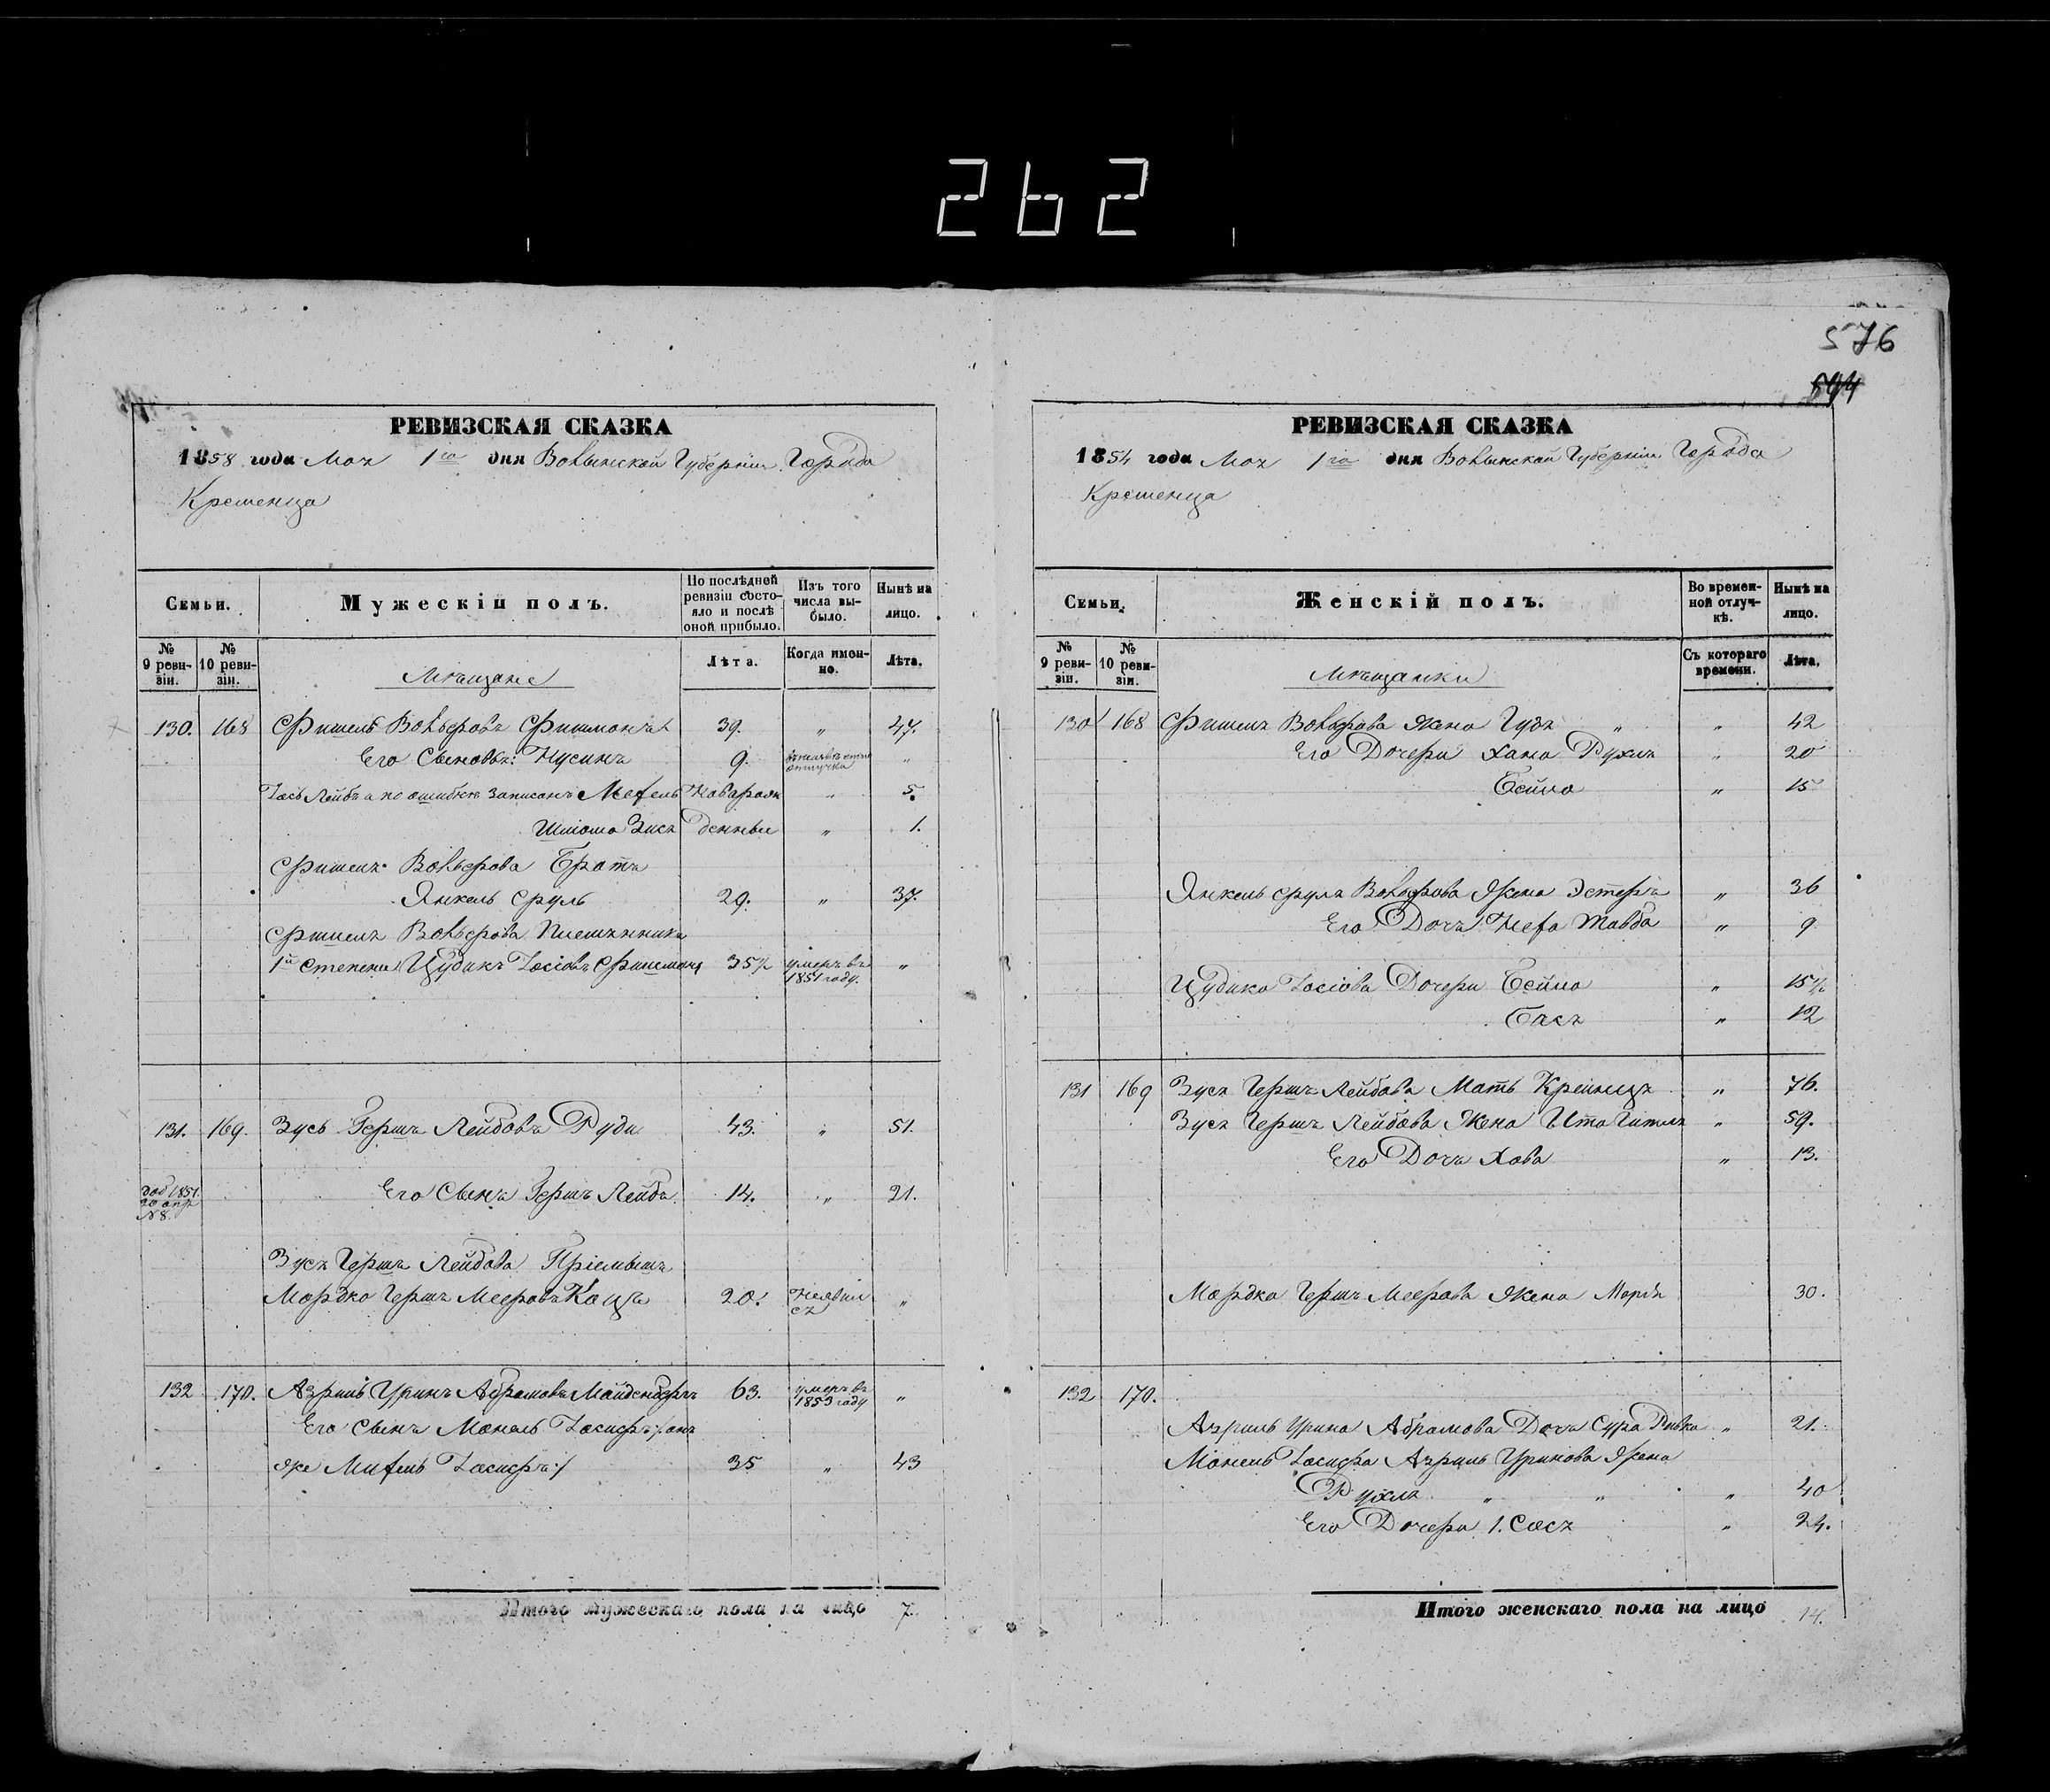 262
576
РЕВИЗСКАЯ СКАЗКА
1858 года Мая 1го дня Волынской Губернiи Города
Кременца
Семьи.
Мужескiй полъ.
По послѣдней ревизiи состояло и послѣ оной прибыло.
Изъ того числа выбыло.
Нынѣ на лицо.
№ 9 ревизiи.
№ 10 ревизiи.
Мѣщане
Лѣта.
Когда именно.
Лѣта.
130. 168 Фишель Вольфовъ Фишманъ 39. " 47.
Его Сыновья: Нусинъ 9. "
Лейбъ а по ошибкѣ записанъ Новорож " 5.
Шлома Зись денные " 1.
Фишеля Вольфова Братъ
Янкель Сруль 29. " 37.
Фишеля Вольфова Племянникъ
1й степени Цудикъ Iосiовъ Фишманъ 35½ умеръ въ 1851 году. "
131. 169. Зусь Гершъ Лейбовъ Руди 43. " 51.
№ 8.
Его Сынъ Гершъ Лейба 14. " 21.
Зуся Герша Лейбова Прiемышъ
Мордко Гершъ Мееровъ Кацъ 20. Неявил ся "
132 170. Азриль Уринъ Абрамовъ Майденбергъ 63. умеръ въ 1853 году "
Его Сынъ Манель Iосифъ /: онъ
же Iосифъ :/ 35 " 43
Итого мужескаго пола на лицо 7.
РЕВИЗСКАЯ СКАЗКА
1854 года Мая 1го дня Волынской Губернiи Города
Кременца
Семьи.
Женскiй полъ.
Во временной отлучкѣ.
Нынѣ на лицо.
№ 9 ревизiи.
№ 10 ревизiи.
Мѣщанки
Съ котораго времени.
Лѣта.
130 168 Фишеля Вольфова Жена Гудя " " 42
Его Дочери Хана Рухля " 20
Бейла " 15
Янкель Сруля Вольфова Жена Эстеръ " 36
Его Дочь Тауба " 9
Цудика Iосiова Дочери Бейла " 15½
Бася " 12
131 169 Зуся Герша Лейбова Мать Крейнця " 76.
Зуся Герша Лейбова Жена Ита Гитля " 59.
Его Дочь Хава " 13.
Мордка Герша Меерова Жена Марiя 30.
132 170.
Азриль Урина Абрамова Дочь Сура Ривка " 21.
Манель Iосифа Азриль Уринова Жена
Рухля " " " 40
Его Дочери 1. Сося " 24.
Итого женскаго пола на лицо 14.